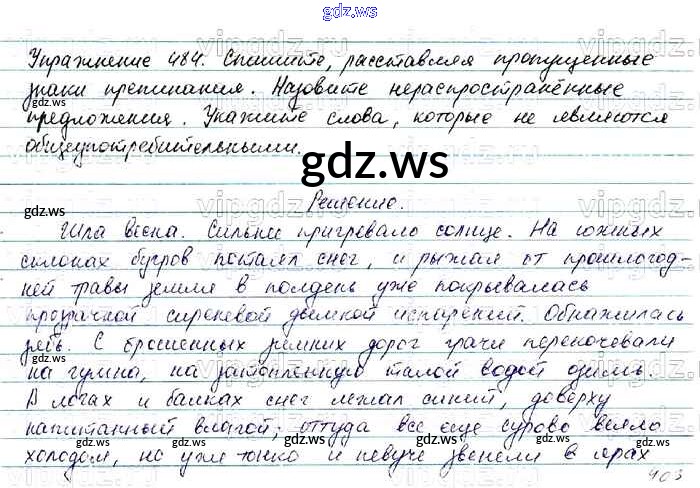 gdz.ws
Упражнение 484. Спишите, расставляя пропущенные
знаки препинания. Назовите нераспространённые
предложения. Укажите слова, которые не являются
общеупотребительными.
gdz.ws
Решение.
Шла весна. Сильнее пригревало солнце. На южных
склонах бугров потаял снег, и рыжая от прошлогод-
ней травы земля в полдень уже покрывалась
прозрачной сиреневой дымкой испарений. Обнажилась
зябь. С брошенных зимних дорог грачи перекочевали
на гумна, на затопленную талой водой озимь.
В логах и балках снег лежал синий, доверху
напитанный влагой; оттуда все еще сурово веяло
холодом, но уже тонко и певуче звенели в ярах
403